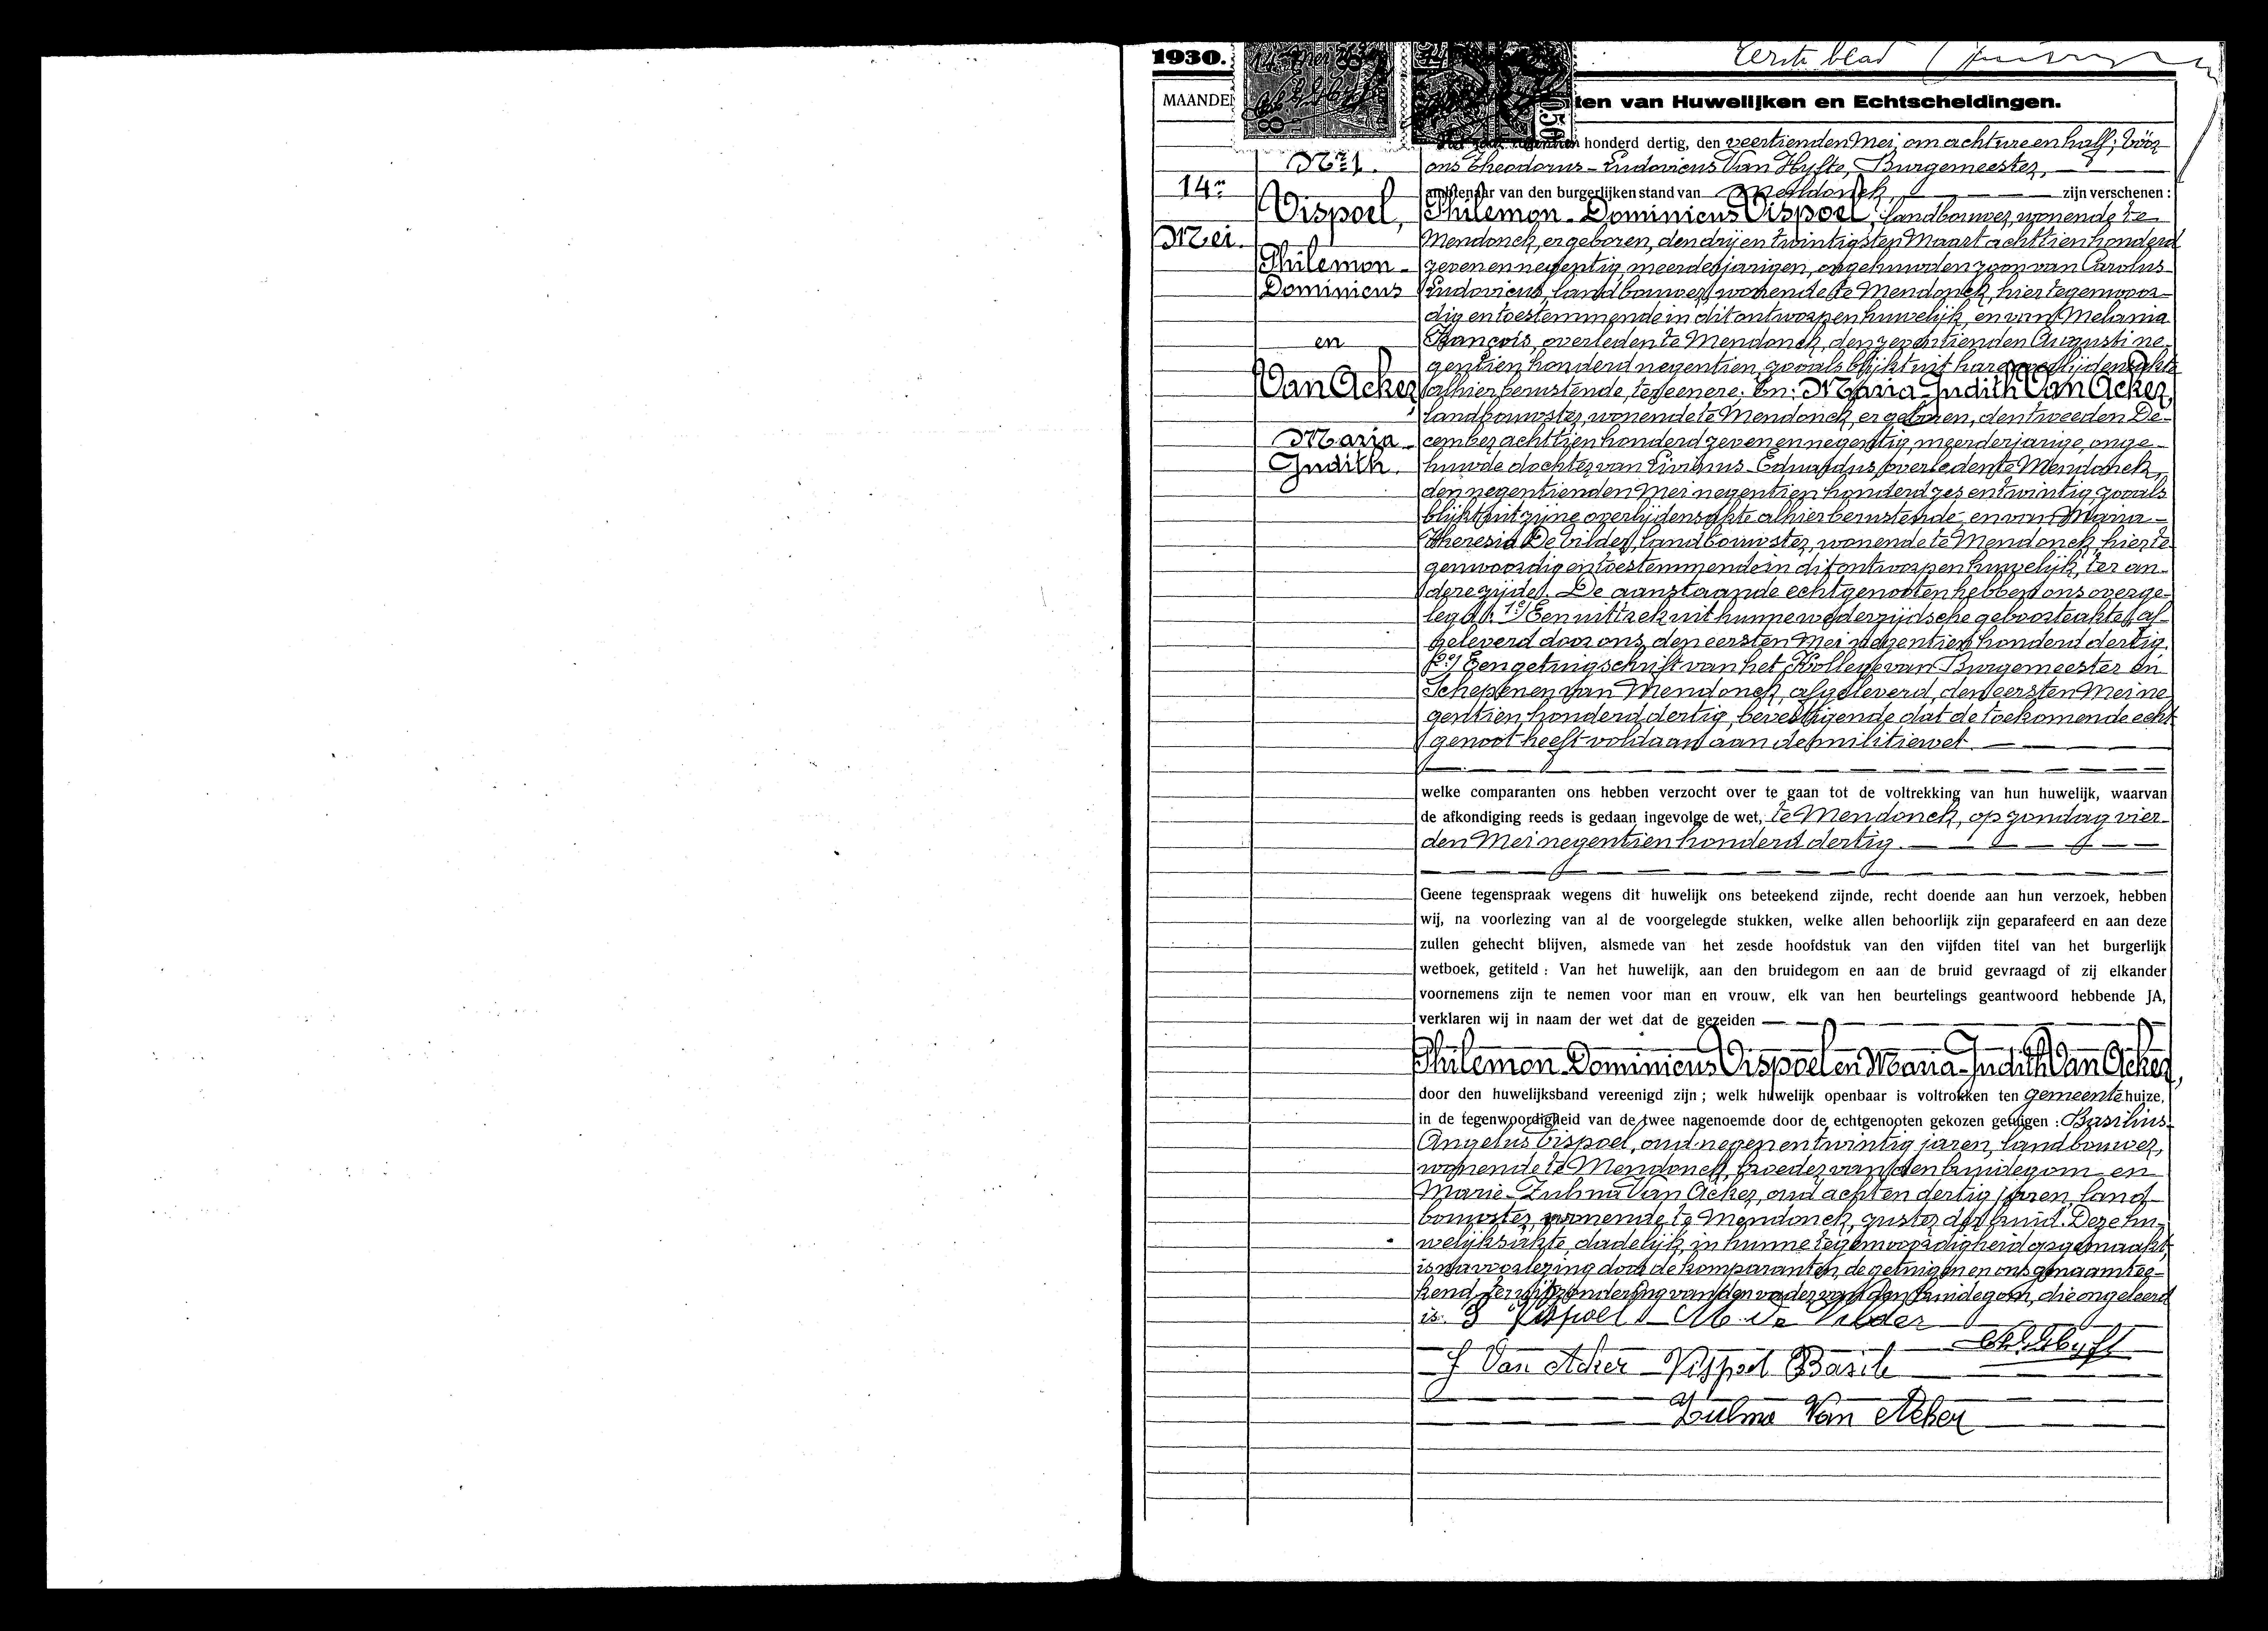 1930.
Eerste blad
MAANDE
ten van Huwelijken en Echtscheidingen.
honderd dertig, den veertienden Mei, om acht ure en half, vóór
Nr 1.
ons Theodorus-Ludovicus Van Hyfte, Burgemeester,
14n
ambtenaar van den burgerlijken stand van Mendonck, zijn verschenen :
Vispoel, Philemon-Dominicus Vispoel, landbouwer, wonende te
Mei. Mendonck, er geboren, den drij en twintigsten Maart achttien honderd
Philemon- zeven en negentig, meerderjarigen, ongehuwden zoon van Carolus-
Dominicus Ludovicus, landbouwer, wonende te Mendonck, hier tegenwoor-
dig en toestemmende in dit ontworpen huwelijk, en van Melania
en François, overleden te Mendonck, den zeventienden Augusti ne-
gentien honderd negentien, zooals blijkt uit hare overlijdensakte
Van Acker, alhier berustende, ter eenere; En: Maria-Judith Van Acker,
landbouwster, wonende te Mendonck, er geboren, den tweeden De-
Maria- cember achttien honderd zeven en negentig, meerderjarige, onge-
Judith. huwde dochter van Livinus-Eduardus, overleden te Mendonck,
den negentienden Mei negentien honderd zes en twintig, zooals
blijkt uit zijne overlijdensakte alhier berustende, en van Maria-
Theresia De Vilder, landbouwster, wonende te Mendonck, hier te-
genwoordig en toestemmende in dit ontworpen huwelijk, ter an-
dere zijde. De aanstaande echtgenooten hebben ons overge-
legd: 1°/ Een uittrek uit hunne wederzijdsche geboorteakte, af-
geleverd door ons, den eersten Mei negentien honderd dertig.
2°/ Een getuigschrift van het Kollege van Burgemeester en
Schepenen van Mendonck, afgeleverd, den eersten Mei ne-
gentien honderd dertig, bevestigende dat de toekomende echt-
genoot heeft voldaan aan de militiewet.
welke comparanten ons hebben verzocht over te gaan tot de voltrekking van hun huwelijk, waarvan
de afkondiging reeds is gedaan ingevolge de wet, te Mendonck, op zondag vier-
den Mei negentien honderd dertig.
Geene tegenspraak wegens dit huwelijk ons beteekend zijnde, recht doende aan hun verzoek, hebben
wij, na voorlezing van al de voorgelegde stukken, welke allen behoorlijk zijn geparafeerd en aan deze
zullen gehecht blijven, alsmede van het zesde hoofdstuk van den vijfden titel van het burgerlijk
wetboek, getiteld : Van het huwelijk, aan den bruidegom en aan de bruid gevraagd of zij elkander
voornemens zijn te nemen voor man en vrouw, elk van hen beurtelings geantwoord hebbende JA,
verklaren wij in naam der wet dat de gezeiden
Philemon-Dominicus Vispoel en Maria-Judith Van Acker,
door den huwelijksband vereenigd zijn ; welk huwelijk openbaar is voltrokken ten gemeentehuize,
in de tegenwoordigheid van de twee nagenoemde door de echtgenooten gekozen getuigen : Basilius-
Angelus Vispoel, oud negen en twintig jaren, landbouwer,
wonende te Mendonck, broeder van den bruidegom en
Marie-Zulma Van Acker, oud acht en dertig jaren, land-
bouwster, wonende te Mendonck, zuster der bruid. Deze hu-
welijksakte, dadelijk in hunne tegenwoordigheid opgemaakt,
is na voorlezing door de komparanten, de getuigen en ons genaamtee-
kend, ter uitzondering van den vader van den bruidegom, die ongeleerd
is. Vispoel M. De Vilder
J Van Acker Vispoel Basile
Zulma Van Acker